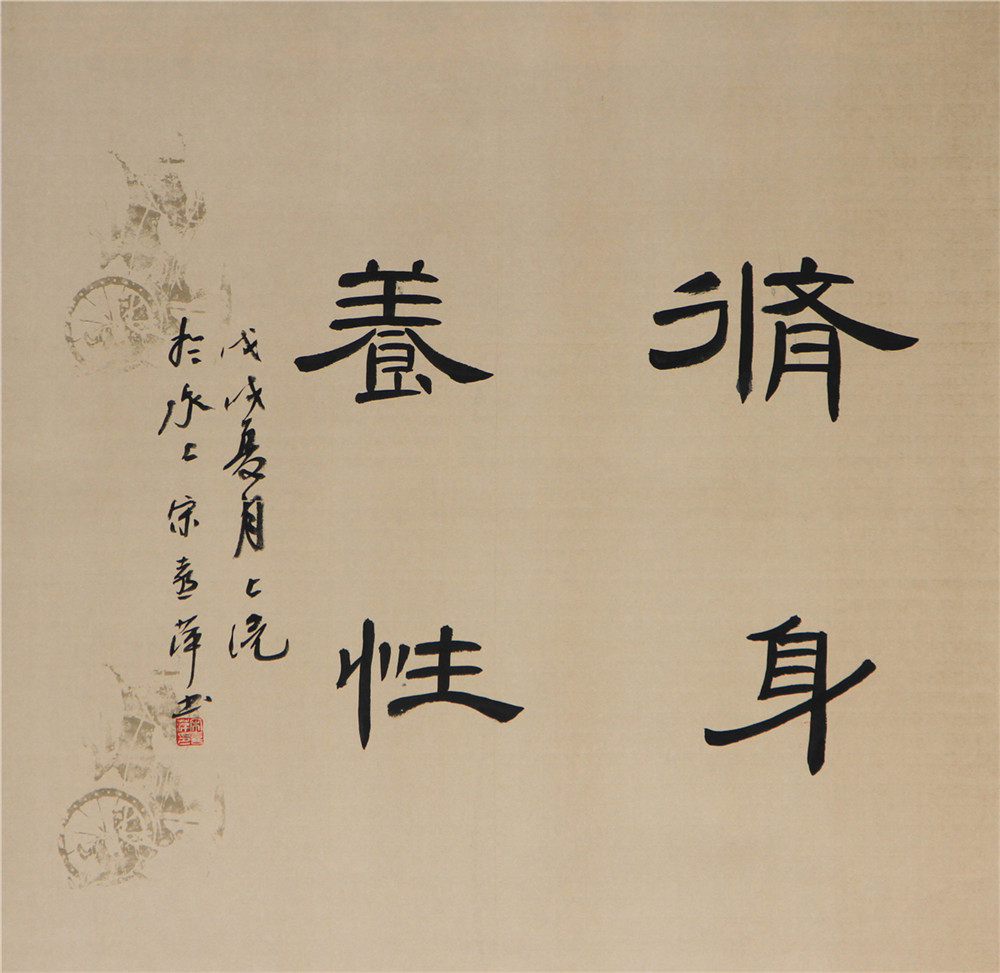 脩身
養性
戊戌夏月上浣
於上宗萍书